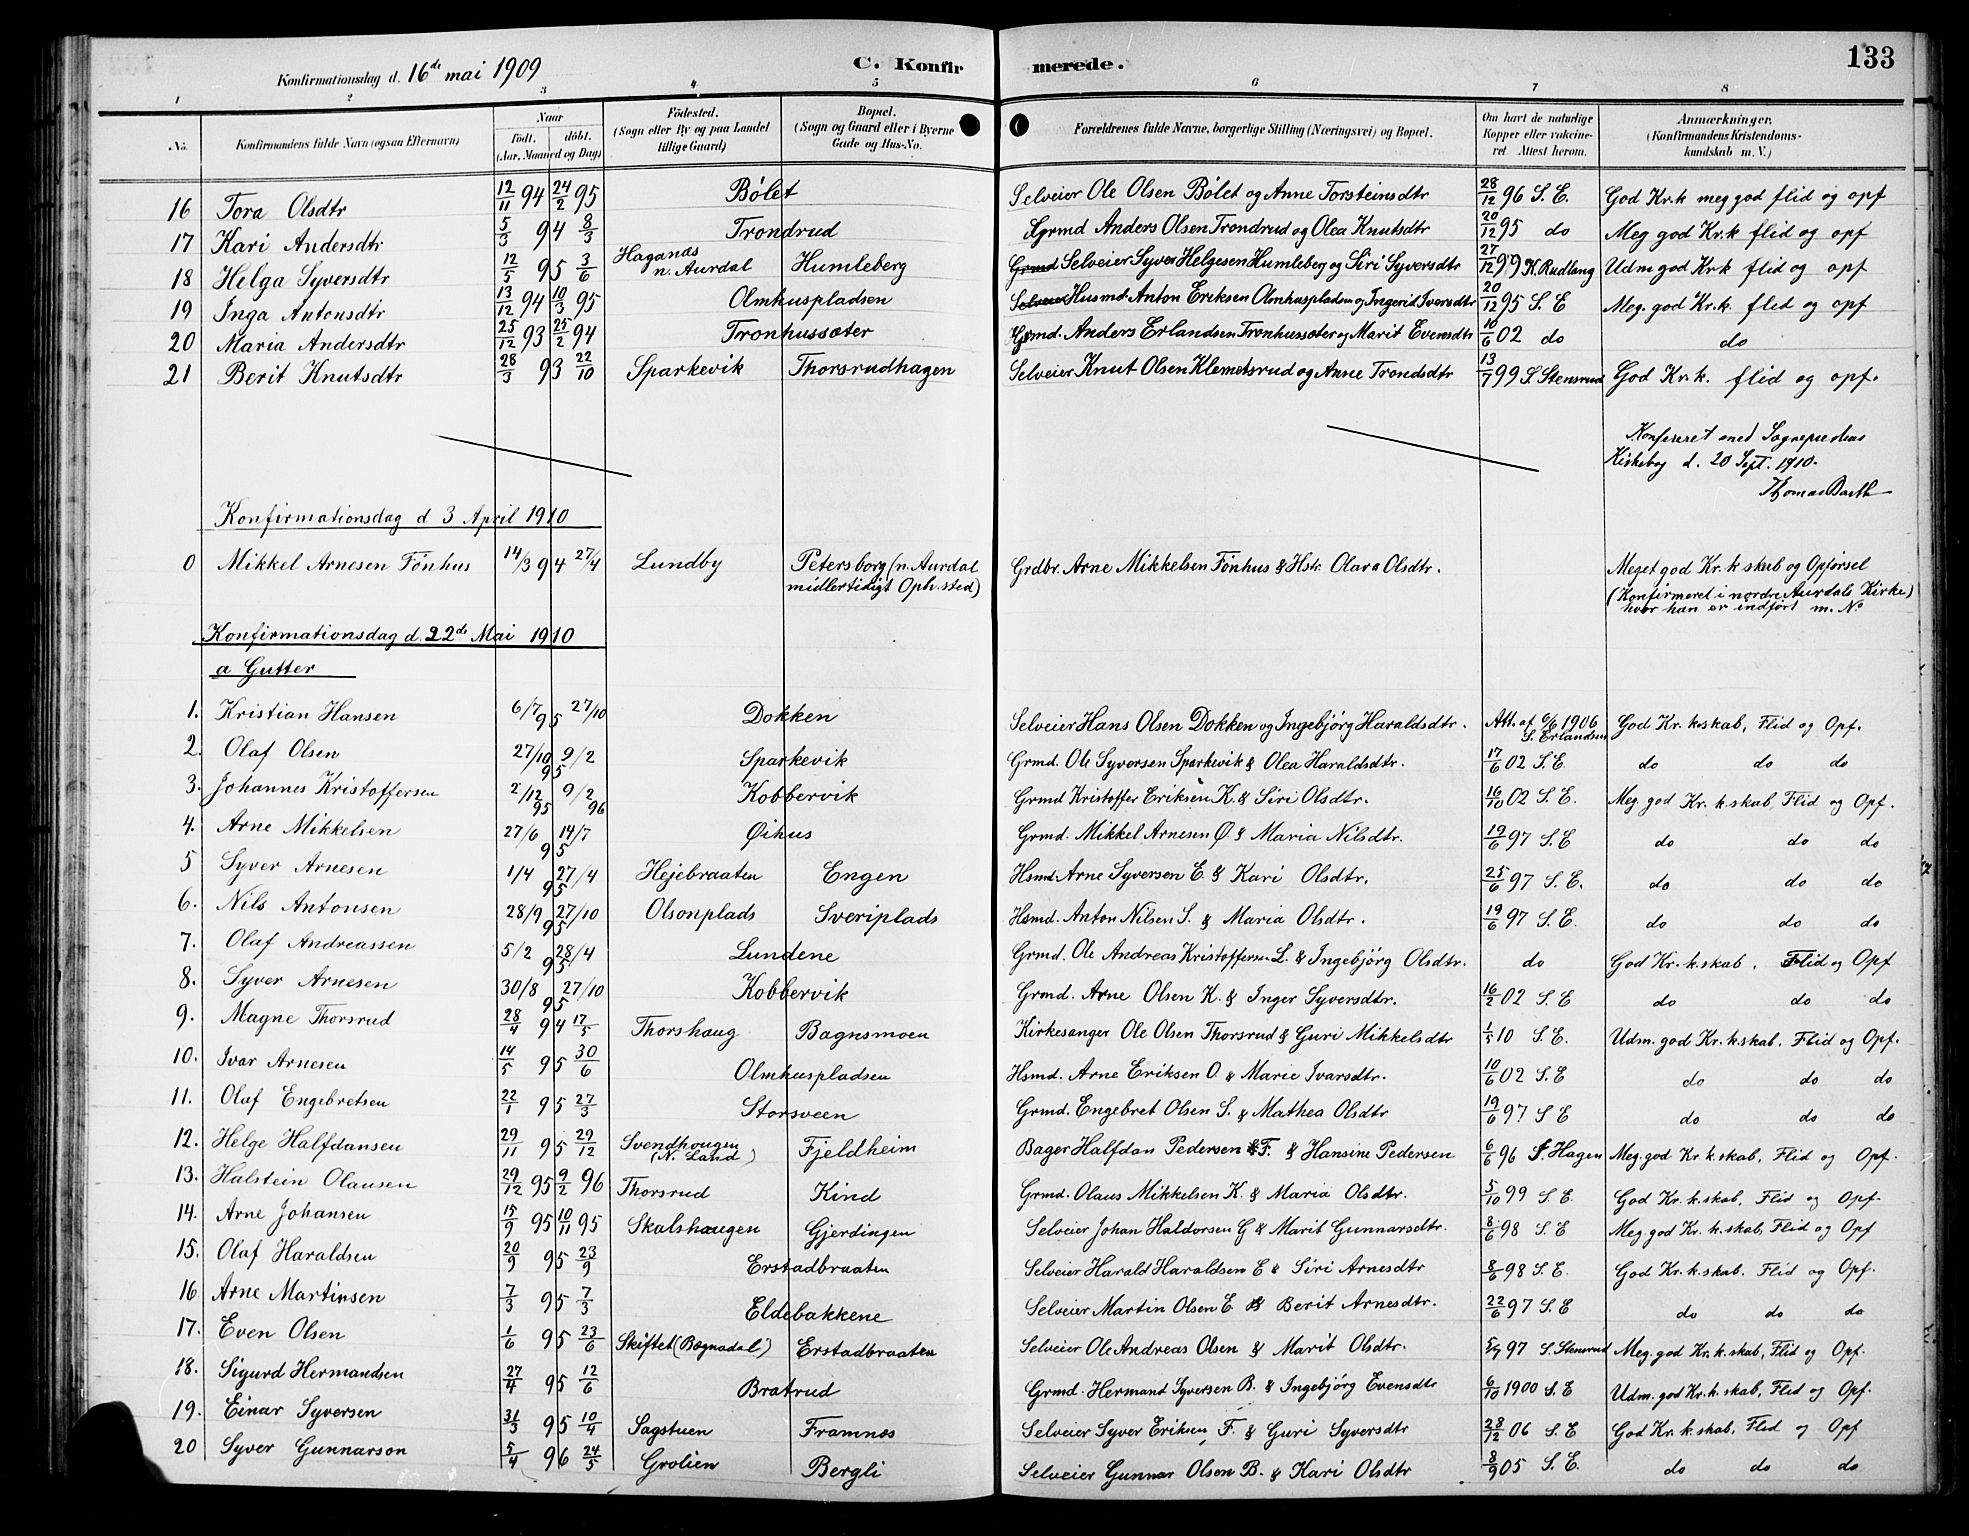 133
Konfirmationsdag d. 16de mai 1909 C. Konfirmerede.
1 2 3 4 5 6 7 8
No. Konfirmandens fulde Navn (ogsaa Efternavn) Naar født. døbt. (Aar, Maaned og Dag) Fødested. (Sogn eller By og paa Landet tillige Gaard) Bopæl. (Sogn og Gaard eller i Byerne Gade og Hus-No. Forældrenes fulde Navne, borgerlige Stilling (Næringsvei) og Bopæl. Om havt de naturlige Kopper eller vakcineret Attest herom. Anmærkninger. (Konfirmandens Kristendomskundskab m. V.)
16 Tora Olsdtr 12/11 94 24/2 95 Bølet Selveier Ole Olsen Bølet og Anne Torsteinsdtr 28/12 96 S. E. God Kr.k meg god flid og opf
17 Kari Andersdtr 5/3 94 8/3 Trondrud Grmd Anders Olsen Trondrud og Olea Knutsdtr 20/12 95 do Meg god Kr.k flid og opf
18 Helga Syversdtr 12/5 95 3/6 Haganæs n. Aurdal Humleberg Grmd Selveier Syver Helgesen Humleberg og Siri Syversdtr 27/12 99 K. Rudlang Udm god Kr.k flid og opf
19 Inga Antonsdtr 13/12 94 10/3 95 Olmhuspladsen Selveier Husmd Anton Eriksen Olmhuspladsen og Ingerid Ivarsdtr 20/12 95 S. E Meg. god Kr.k. flid og opf
20 Maria Andersdtr 25/12 93 25/2 94 Tronhussæter Grmd. Anders Erlandsen Tronhussæter og Marit Evensdtr 10/6 02 do do
21 Berit Knutsdtr 28/3 93 22/10 Sparkevik Thorsrudhagen Selveier Knut Olsen Klemetsrud og Anne Trondsdtr 13/7 99 S. Stensrud God Kr.k. flid og opf.
Konfereret med Sogneprestens
Kirkebog d. 20 Sept. 1910.
Thomas Barth
Konfirmationsdag d 3 April 1910
0 Mikkel Arnesen Fønhus 14/3 94 27/4 Lundby Petersborg (n. Aurdal midlertidigt Oph. sted) Grdbr. Arne Mikkelsen Fønhus & Hstr. Olava Olsdtr. Meget god Kr. k skab og Opførsel (Konfirmeret i nordre Aurdals Kirke) hvor han er indført m. No
Konfirmationsdag d. 22de Mai 1910
a Gutter
1. Kristian Hansen 6/7 95 27/10 Dokken Selveier Hans Olsen Dokken og Ingebjørg Haraldsdtr. Att. af 6/6 1906 S. Erlandsen God Kr. kskab, Flid og Opf.
2. Olaf Olsen 27/10 95 9/2 Sparkevik Grmd. Ole Syversen Sparkevik & Olea Haraldsdtr. 17/6 02 S. E. do do do
3. Johannes Kristoffersen 2/12 95 9/2 96 Kobbervik Grmd Kristoffer Eriksen K. & Siri Olsdtr. 16/10 02 S. E. Meg. god Kr. k. skab, Flid og Opf.
4. Arne Mikkelsen 27/6 95 14/7 Øihus Grmd. Mikkel Arnesen Ø. & Maria Nilsdtr. 19/6 97 S. E do do do
5 Syver Arnesen 1/4 95 27/4 Hejebraaten Engen Hsmd. Arne Syversen E. & Kari Olsdtr. 25/6 97 S. E. do do do
6. Nils Antonsen 28/9 95 27/10 Olsonplads Sveriplads Hsmd. Anton Nilsen S. & Maria Olsdtr. 19/6 97 S. E. do do do
7. Olaf Andreassen 5/2 95 28/4 Lundene Grmd. Ole Andreas Kristoffersen L. & Ingebjørg Olsdtr. do God Kr. k. skab. Flid og Opf
8. Syver Arnesen 30/8 95 27/10 Kobbervik Grmd. Arne Olsen K. & Inger Syversdtr. 16/2 02 S. E do do do
9. Magne Thorsrud 28/4 94 17/5 Thorshaug Bagnsmoen Kirkesanger Ole Olsen Thorsrud & Guri Mikkelsdtr 1/5 10 S. E. Udm. god Kr. k. skab. Flid og Opf.
10. Ivar Arnesen 14/5 95 30/6 Olmhuspladsen Hsmd. Arne Eriksen O. & Marie Ivarsdtr. 10/6 02 S. E do do do
11. Olaf Engebretsen 22/1 95 27/3 Storsveen Grmd. Engebret Olsen S. & Mathea Olsdtr 19/6 97 S E do do do
12. Helge Halfdansen 29/11 95 29/12 Svendhougen (N. Land) Fjeldheim Bager Halfdan Pedersen F. & Hansine Pedersen 6/6 96 S. Hagen Meg. god Kr. k. skab, Flid og Opf.
13. Halstein Olausen 29/12 95 9/2 96 Thorsrud Kind Grmd. Olaus Mikkelsen K. & Maria Olsdtr. 5/10 99 S. E. God Kr. k. skab, Flid og Opf.
14. Arne Johansen 15/9 95 10/11 95 Skalshaugen Gjerdingen Selveier Johan Haldorsen G & Marit Gunnarsdtr. 8/6 98 S. E Meg. god Kr. k. skab, Flid og Opf
15. Olaf Haraldsen 20/9 95 23/9 Erstadbraaten Selveier Harald Haraldsen E & Siri Arnesdtr 8/6 98 S. E. God Kr. k. skab. Flid og Opf.
16. Arne Martinsen 7/3 95 7/3 Eldebakkene Selveier Martin Olsen E. & Berit Arnesdtr. 22/6 97 S. E do do do
17. Even Olsen 1/6 95 23/6 Skiftet (Bægnadal) Erstadbraaten Selveier Ole Andreas Olsen & Marit Olsdtr. 5/7 97 S. Stensrud Meg. god Kr. k. skab, Flid og Opf.
18. Sigurd Hermandsen 27/4 95 12/6 Bratrud Grmd. Hermand Syversen B. & Ingebjørg Evensdtr 6/10 1900 S. E Udm. god Kr. k. skab, Flid og Opf.
19. Einar Syversen 31/3 95 10/4 Sagstuen Framnæs Selveier Syver Eriksen F. & Guri Syversdtr 28/12 06 S. E God Kr. k. skab, Flid og Opf
20 Syver Gunnarson 5/4 96 24/5 Grolien Bergli Selveier Gunnar Olsen B. & Kari Olsdtr 8/9 05 S. E. do do do